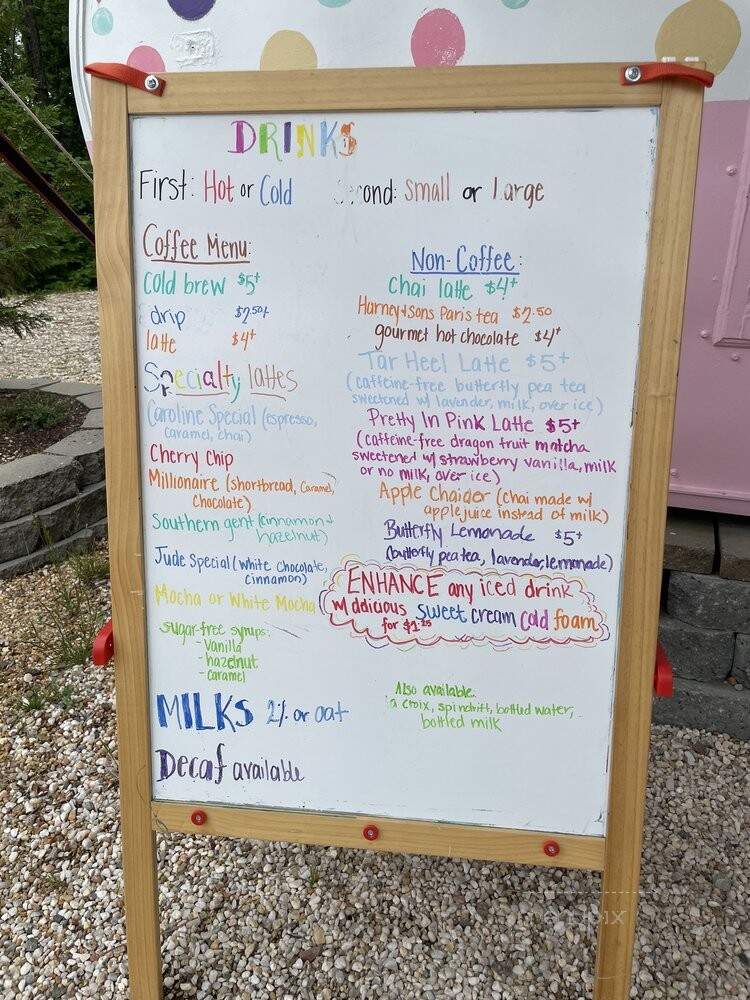 DRINKS
First: Hot or Cold
Second: Small or Large
Coffee Menu:
cold brew $5+
drip $2.50+
latte $4+
Specialty lattes
Caroline Special (espresso,
caramel, chai)
Cherry Chip
Millionaire (shortbread, Caramel,
Chocolate)
Southern gent (cinnamon +
hazelnut)
Jude Special (white chocolate,
cinnamon)
Mocha or White Mocha
sugar-free syrups:
-Vanilla
-hazelnut
-caramel
MILKS 2% or oat
Decaf available
Non-Coffee:
Chai latte $4+
Harney+sons Paris tea $2.50
gourmet hot chocolate $4+
Tar Heel Latte $5+
(caffeine-free butterfly pea tea
sweetened w/ lavender, milk, over ice)
Pretty In Pink Latte $5+
(caffeine-free dragon fruit matcha
sweetened w/ strawberry vanilla, milk
or no milk, over ice)
Apple Chaider (chai made w/
apple juice instead of milk)
Butterfly Lemonade $5+
(butterfly pea tea, lavender, lemonade)
ENHANCE any iced drink
w/ delicious sweet cream cold foam
for $1.25
Also available:
a croix, spindrift, bottled water,
bottled milk